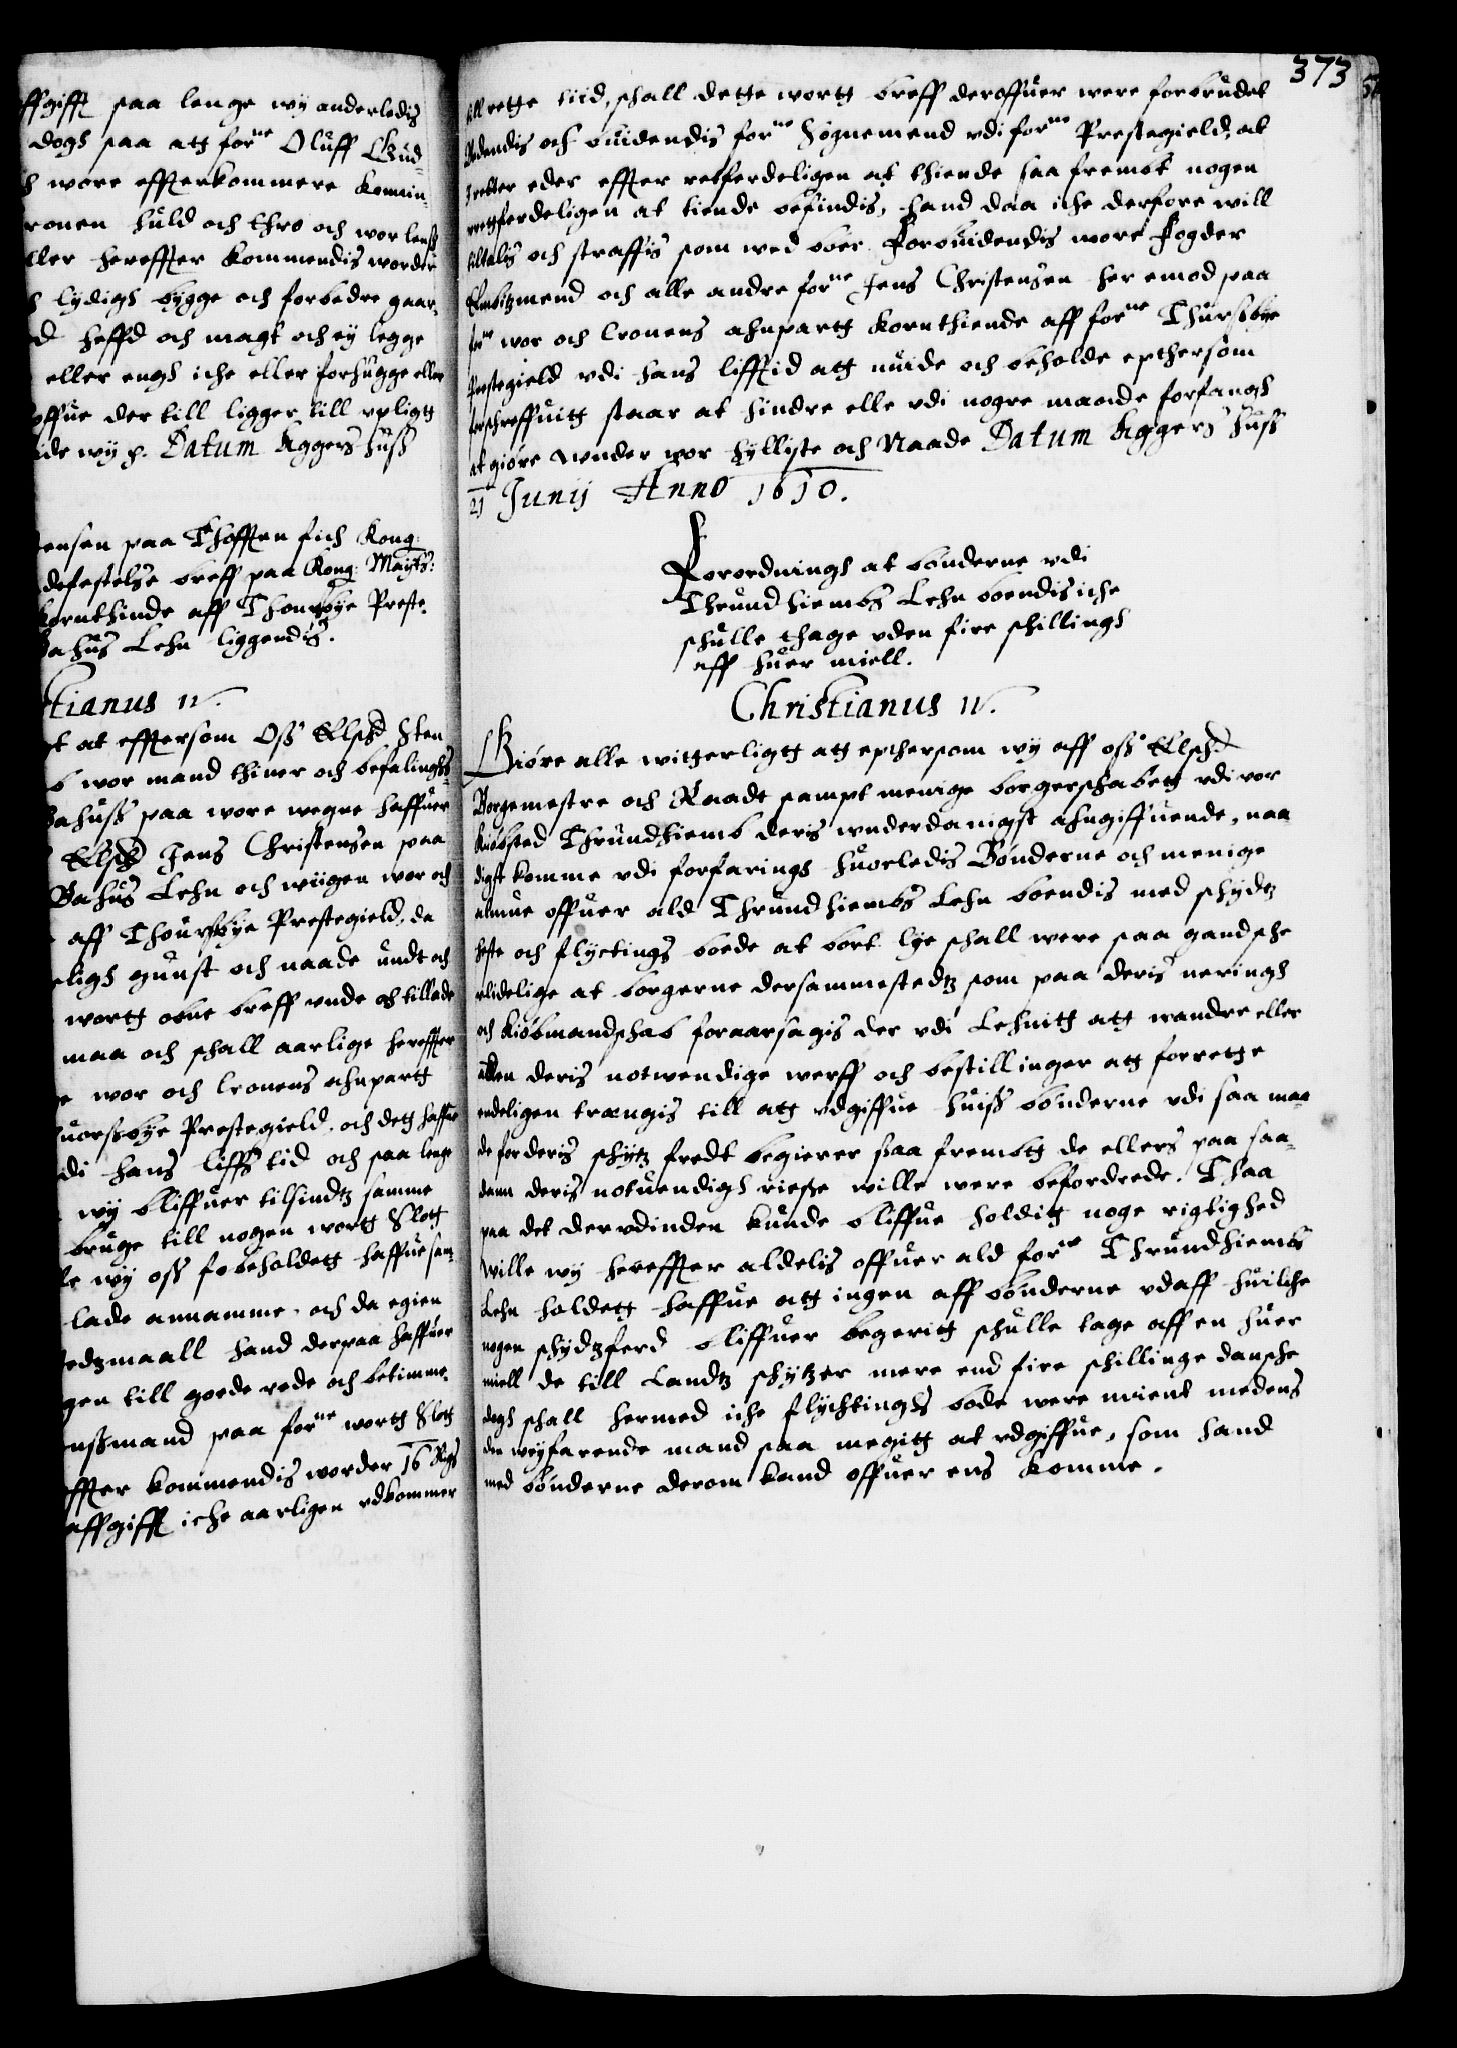 ffgifft saa lenge wy anderledis
dogh saa att forne Oluff Gud-
h wore effterkommere konnin-
ronen huld och thro och wor lens
ller hereffter kommendis worder
h lydigh bygge och forbedre gaar-
d heffd och magt och ey legge
eller engh iche eller forhugge eller
offue der till ligger till vpligtt
ide wy p. Datum Aggers huss
ensen paa Thofften fich Kong:
defestelse breff paa Kong: Maytts:
kornthinde aff Thoursbye Preste-
Bahus Lehn liggendis.
tianus IV.
t at efftersom Oss Elsch Sten
b wor mand thiner och befalinghs-
Bahuss paa wore wegne haffuer
Elsch Jens Christensen paa
Bahus Lehn och wiigen wor och
aff Thoursbye Prestegield, da
eligh gunst och naade undt och
wortt obne breff vnde och tillade
maa och schall aarlige hereffter
e wor och Cronens ahnpartt
uorssbye Prestegield. och dett haffue
di hans liffs tid och saa lenge
wy bliffuer tilsindtz samme
bruge till nogen wortt Slott
le wy oss fobeholdett haffue sam-
lade annamme. och da egien
edtzmaall hand derpaa haffuer
gen till goede rede och betimme-
nssmand paa forne wortt Slott
ffter kommendis worder 16
affgifft iche aarligen vdkommer
373
till rette tiid, schall dette wortt breff deroffuer were forbrudet
Bedendis och biudendis forne Sognemend vdi forne Prestegield, at
I retter eder effter retferdeligen at thiende saa fremdt nogen
wretferdeligen at tiende befindis, hand daa iche derfore will
tiltalis och straffis som wed bør. Forbiudendis wore fogder
Embitzmend och alle andre forne Jens Christensen her emod paa
forne wor och Cronens ahnpartt kornthiende aff forne Thurssbye
Prestegield vdi hans lifftid att niude och beholde epthersom
forschreffuitt staar at hindre elle vdi nogre maade forfangh
at giøre wnder wor hyllyste och Naade Datum Aggers huss
21 Junij Anno 1610.
Forordningh at bønderne vdi
Thrundhiembs Lehn boendis iche
schulle thage vden fire schillingh
aff huer miell.
Christianus IV.
Giøre alle witterligtt att epthersom wy aff oss Elsch:
Borgemestre och Raadt sampt menige borgerschabett vdi vor
kiøbsted Thrundhiemb deris wnderdanigst ahngiffuende, naa
digst komme vdi forfaringh huorledis Bønderne och menige
almue offuer ald Thrundhiembs Lehn boendis med schydtz
heste och flyctings boede at bort lye schall were saa gandsche
vlidelige at borgerne dersammestedtz som paa deris neringh
och kiøbmandschab foraarsagis der vdi Lehnitt att wandre eller
ellers deris notwendige werff och bestillinger att forrette
endeligen trengis till att vdgiffue huiss bønderne vdi saa maa
de for deris schytz fredt begierer saa frembtt de ellers paa saa-
dann deris notuendigh riesse wille were befordrede. Thaa
paa det dervdinden kunde bliffue holditt noge rigtighed
wille wy hereffter aldelis offuer ald forne Thrundhiembs
Lehn holdett haffue att ingen aff bønderne vdaff huilche
nogen schydtzferd bliffuer begeritt schulle tage aff en huer
miell de till Landtz schytzer mere end fire schillinge dansche
dogh schall hermed iche flychtinghs bode were mient medens
den weyfarende mand saa megitt at vdgiffue, som hand
med bønderne derom kand offuer ens komme.